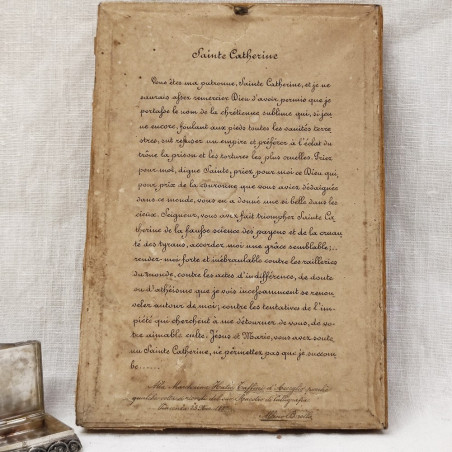 Sainte Catherine
Vous êtes ma patronne, Sainte Catherine, et je ne
saurais assez remercier Dieu d'avoir permis que je
portasse le nom de la chrétienne sublime qui, si jeu
ne encore, foulant aux pieds toutes les vanités terre
stres, sut refuser un empire et préférer à l'éclat du
trône la prison et les tortures les plus cruelles. Priez
pour moi, digne Sainte, priez pour moi ce Dieu qui,
pour prix de la couronne que vous aviez dédaignée
dans ce monde, vous en a donné une si belle dans les
cieux. Seigneur, vous avez fait triompher Sainte Ca
therine de la fausse science des payens et de la cruau
té des tyrans, accordez moi une grâce semblable;..
rendez-moi forte et inébranlable contre les railleries
du monde, contre les actes d'indifférence, de doute
ou d'athéisme que je vois incessamment se renou
veler autour de moi; contre les tentatives de l'im
piété qui cherchent à me détourner de vous, de vo
tre aimable culte. Jésus et Marie, vous avez soute
nu Sainte Catherine, ne permettez pas que je succom
be......